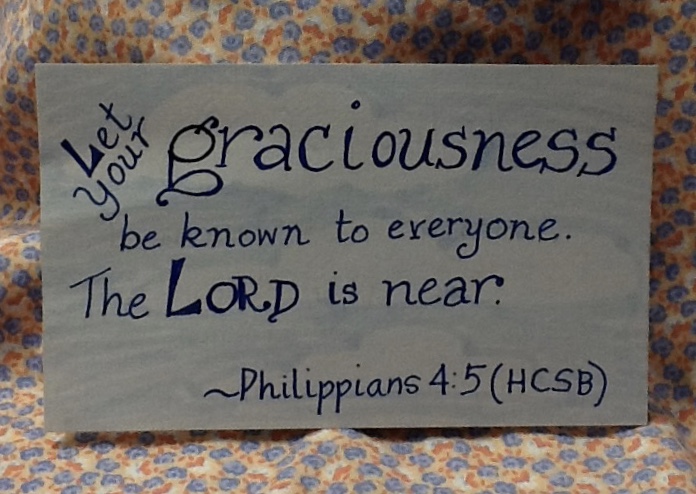 Let
Your
graciousness
be known to everyone.
The LORD is near.
~Philippians 4:5 (HCSB)